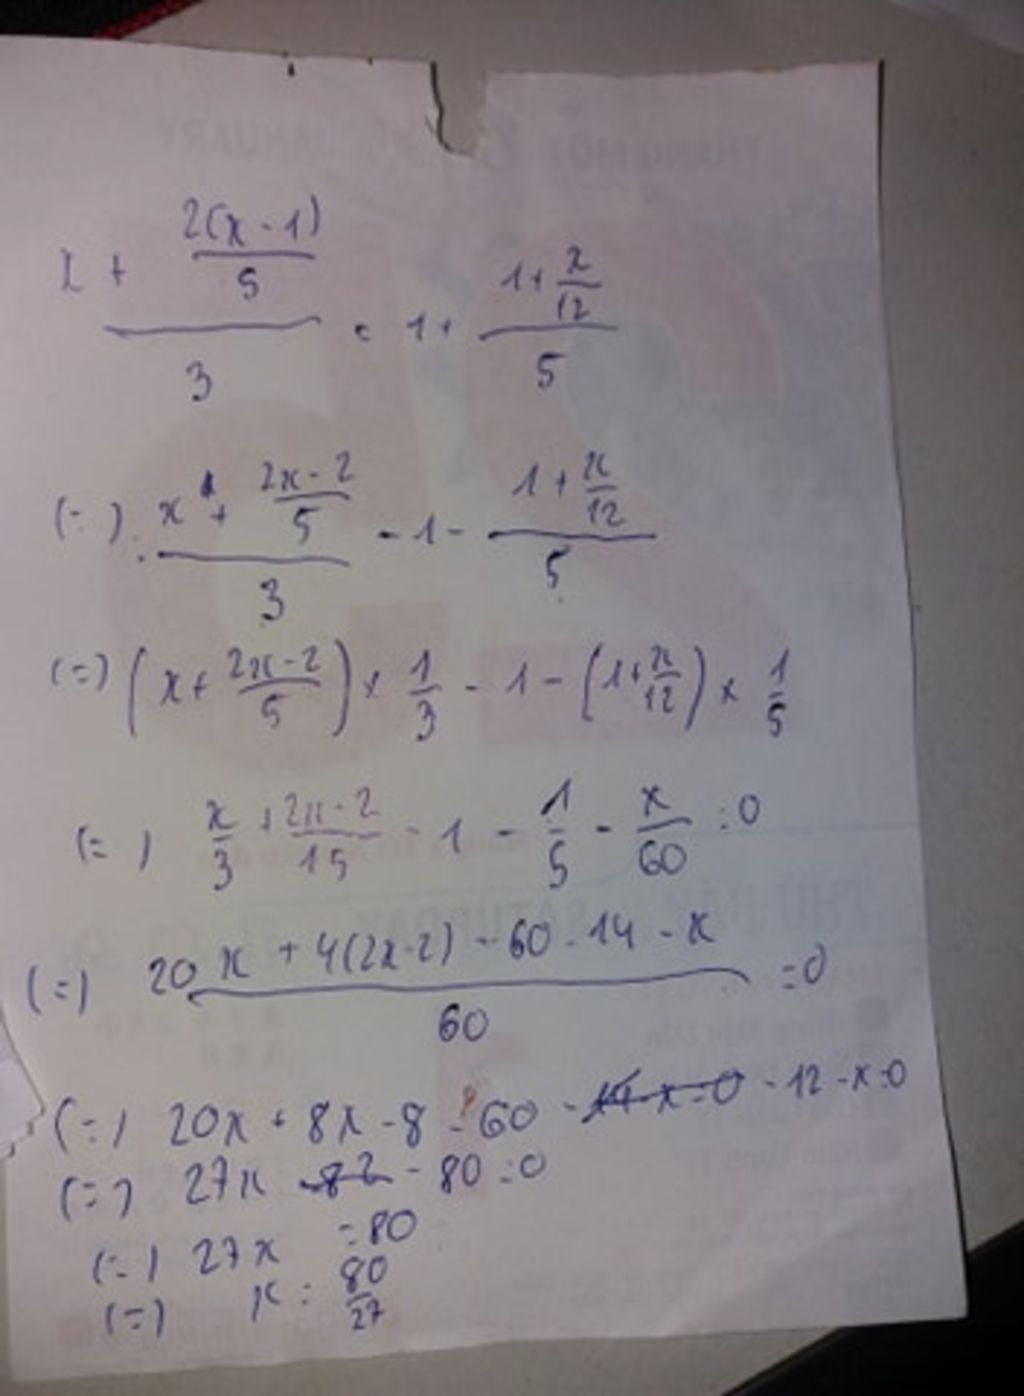 THÁNG MỘT JANUARY
x + \frac{\frac{2(x-1)}{5}}{3} = 1 + \frac{1+\frac{x}{12}}{5}
(=) \frac{x + \frac{2x-2}{5}}{3} - 1 - \frac{1+\frac{x}{12}}{5}
(=) (x + \frac{2x-2}{5}) × \frac{1}{3} - 1 - (1+\frac{x}{12}) × \frac{1}{5}
(=) \frac{x}{3} + \frac{2x-2}{15} - 1 - \frac{1}{5} - \frac{x}{60} = 0
SATURDAY
(=) \frac{20x + 4(2x-2) - 60 - 14 - x}{60} = 0
(=) 20x + 8x - 8 - 60 - 12 - x = 0
(=) 27x - 80 = 0
(=) 27x = 80
(=) x = \frac{80}{27}